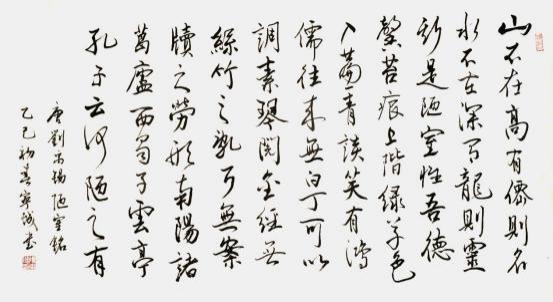 山不在高有僊則名
水不在深有龍則靈
斯是陋室惟吾德
馨苔痕上階綠草色
入簾青談笑有鴻
儒往來無白丁可以
調素琴閱金經無
絲竹之亂耳無案
牘之勞形南陽諸
葛廬西蜀子雲亭
孔子云何陋之有
唐劉禹錫陋室銘
乙巳初春寧城書